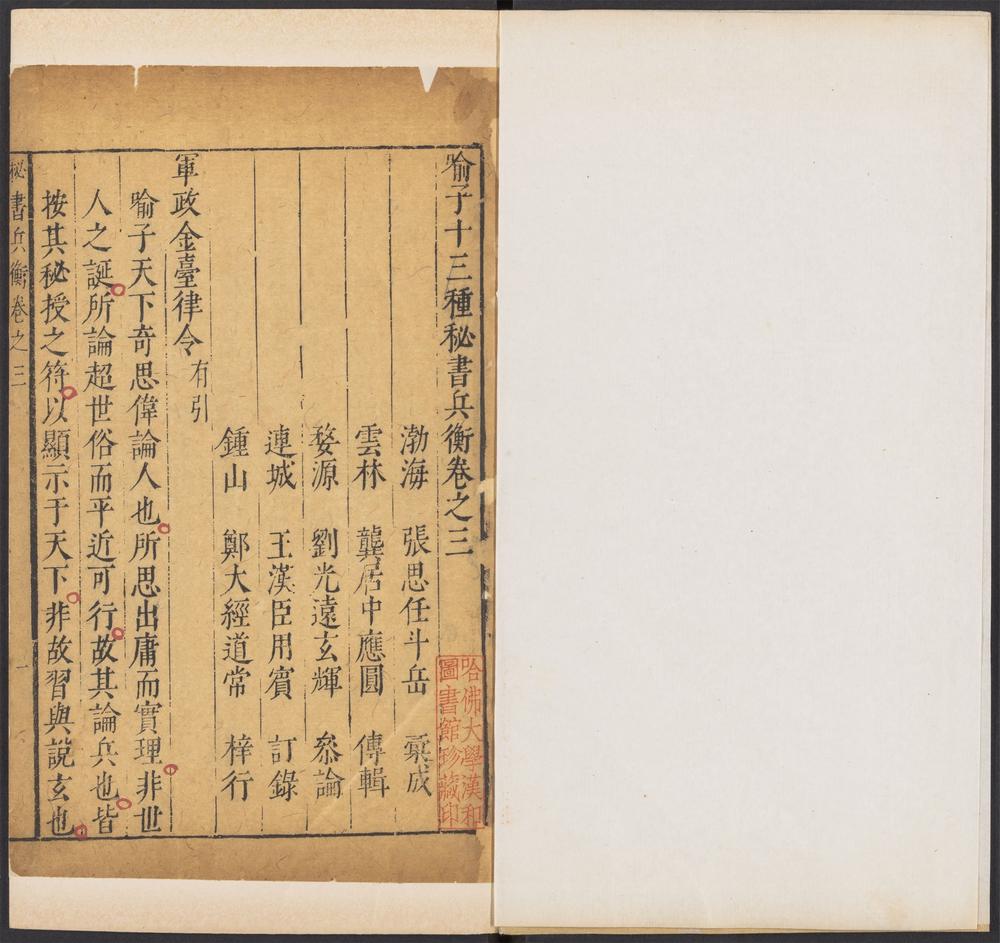 喻子十三種秘書兵衡卷之三
渤海 張思任斗岳 彙成
雲林 龔居中應圓 傳輯
婺源 劉光遠玄輝 叅論
連城 王漢臣用賓 訂錄
鍾山 鄭大經道常 梓行
軍政金臺律令 有引
喻子天下奇思偉論人也所思出庸而實理非世
人之誕所論超世俗而平近可行故其論兵也皆
按其秘授之符以顯示于天下非故習與說玄也
秘書兵衡卷之三 一
哈佛大學漢和
圖書館珍藏印